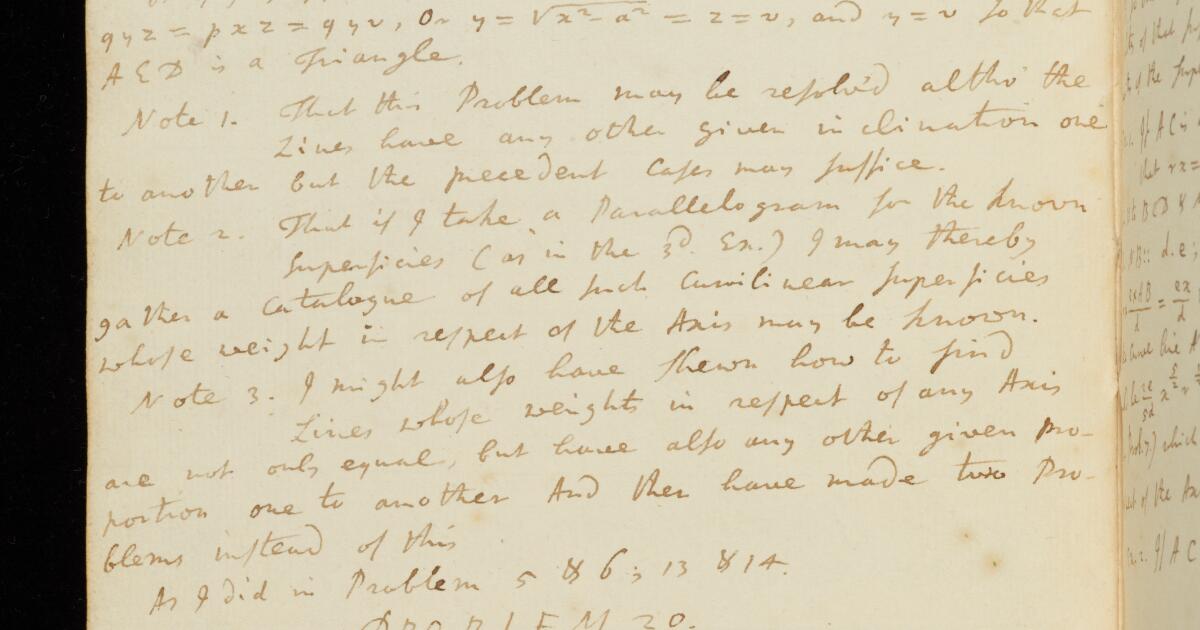 qyz = pxz = qyv, Or y = √x²-a² = z = v, and y = v so that
AED is a Triangle.
Note 1. That this Problem may be resolv'd altho' the
Lines have any other given inclination one
to another but the precedent Cases may suffice.
Note 2. That if I take a Parallelogram for the known
superficies (as in the 3d. Ex.) I may thereby
gather a Catalogue of all such Curvilinear superficies
whose weight in respect of the Axis may be known.
Note 3. I might also have shewn how to find
Lines whose weights in respect of any Axis
are not only equal, but have also any other given pro-
portion one to another And then have made two Pro-
blems instead of this
As I did in Problem 5 & 6; 13 & 14.
PROBLEM 20.